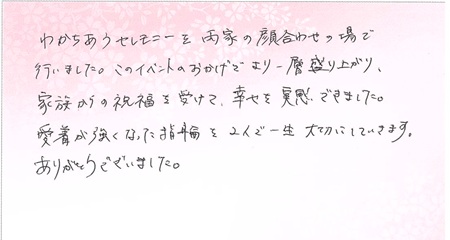 わかちあうセレモニーを両家の顔合わせの場で
行いました。このイベントのおかげでより一層盛り上がり、
家族からの祝福を受けて、幸せを実感できました。
愛着が強くなった指輪を2人で一生大切にしていきます。
ありがとうございました。